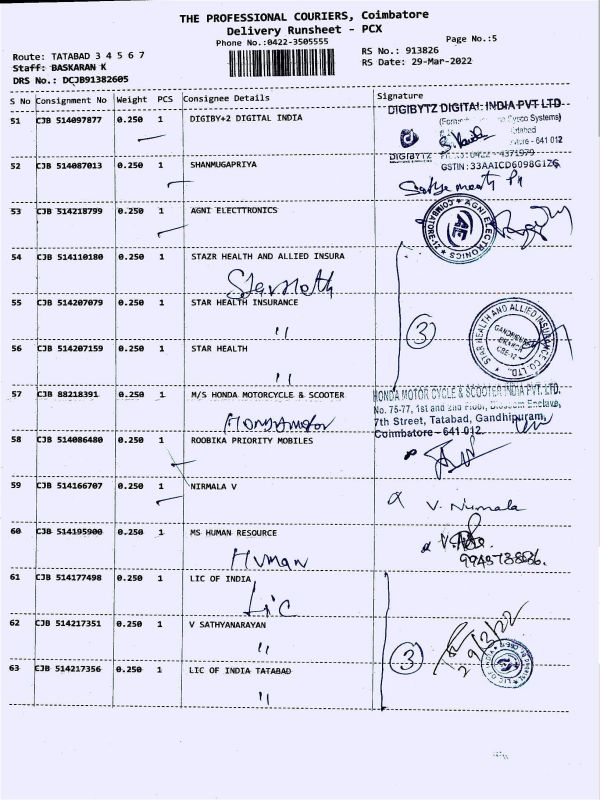 THE PROFESSIONAL COURIERS, Coimbatore
Delivery Runsheet - PCX
Phone No.:0422-3505555
Page No.:5
Route: TATABAD 3 4 5 6 7
RS No.: 913826
Staff: BASKARAN K
RS Date: 29-Mar-2022
DRS No.: DCJB91382605
S No Consignment No Weight PCS Consignee Details Signature
51 CJB 514097877 0.250 1 DIGIBY+2 DIGITAL INDIA
DIGIBYTZ DIGITAL INDIA PVT LTD
Systems)
641 012
DIGIBYTZ
GSTIN:33AAICD6098G1Z6
52 CJB 514087013 0.250 1 SHANMUGAPRIYA
53 CJB 514218799 0.250 1 AGNI ELECTTRONICS
AGNI ELECTRONICS
COIMBATORE-12
AE
54 CJB 514110180 0.250 1 STAZR HEALTH AND ALLIED INSURA
55 CJB 514207079 0.250 1 STAR HEALTH INSURANCE
"
3
STAR HEALTH AND ALLIED INSURANCE CO. LTD.
GANDHIPURAM
BRANCH
CBE-12
56 CJB 514207159 0.250 1 STAR HEALTH
"
57 CJB 88218391 0.250 1 M/S HONDA MOTORCYCLE & SCOOTER
HONDA MOTOR CYCLE & SCOOTER INDIA PVT. LTD.
No. 75-77, 1st and 2nd Floor, Blossom Enclave,
7th Street, Tatabad, Gandhipuram,
Coimbatore - 641 012.
HONDAMOTOR
58 CJB 514086480 0.250 1 ROOBIKA PRIORITY MOBILES
59 CJB 514166707 0.250 1 NIRMALA V
V. Nirmala
60 CJB 514195900 0.250 1 MS HUMAN RESOURCE
Human
61 CJB 514177498 0.250 1 LIC OF INDIA
Lic
62 CJB 514217351 0.250 1 V SATHYANARAYAN
"
3
29/3/22
LIC OF INDIA
63 CJB 514217356 0.250 1 LIC OF INDIA TATABAD
"